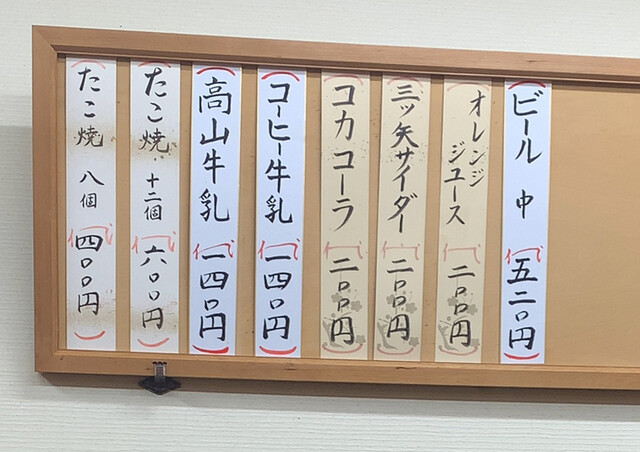 ビール 中 代 五二〇円
オレンジジュース 代 二〇〇円
三ッ矢サイダー 代 二〇〇円
コカコーラ 代 二〇〇円
コーヒー牛乳 代 一四〇円
高山牛乳 代 一四〇円
たこ焼 十二個 代 六〇〇円
たこ焼 八個 代 四〇〇円